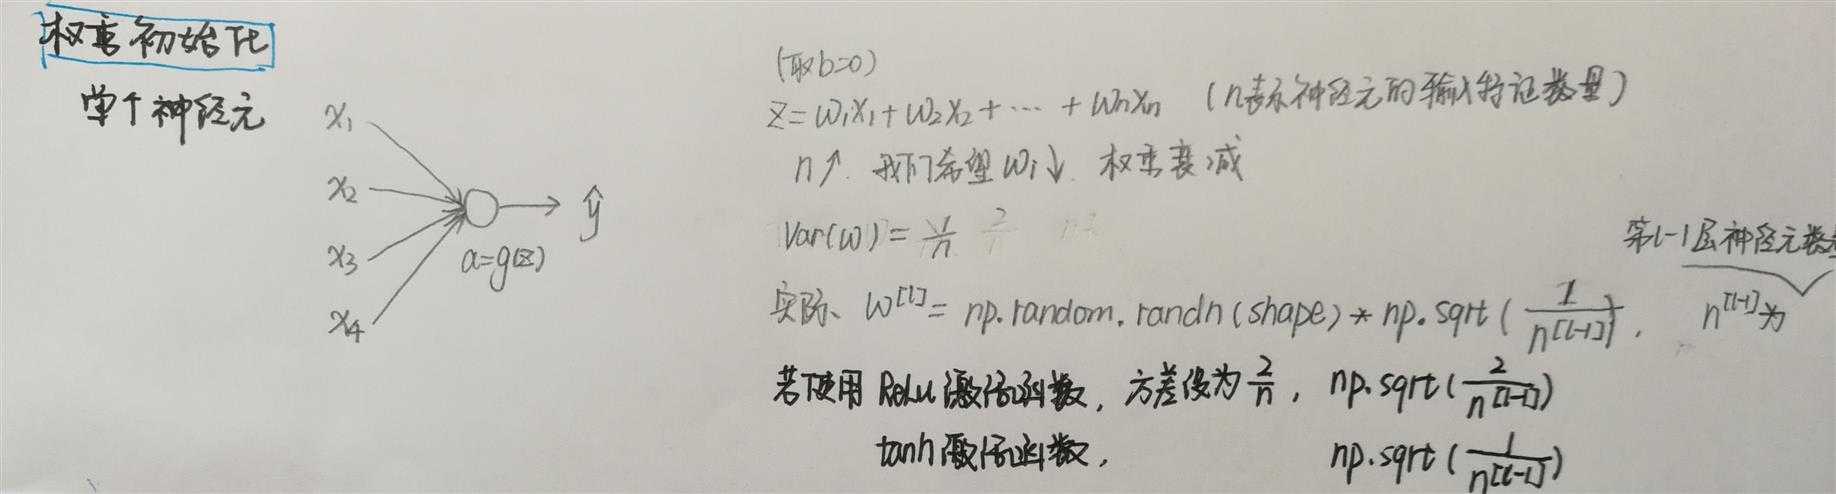 权重初始化
单个神经元
x₁
x₂
x₃
x₄
a=g(z)
ŷ
(取b=0)
z=w₁x₁+w₂x₂+⋯+wₙxₙ (n表示神经元的输入特征数量)
n↑. 我们希望wᵢ↓. 权重衰减
Var(w)=1/n 2/n
第l-1层神经元数
实际、w^[l]=np.random.randn(shape)*np.sqrt(1/n^[l-1]), n^[l-1]为
若使用ReLu激活函数,方差设为2/n, np.sqrt(2/n^[l-1])
tanh激活函数, np.sqrt(1/n^[l-1])